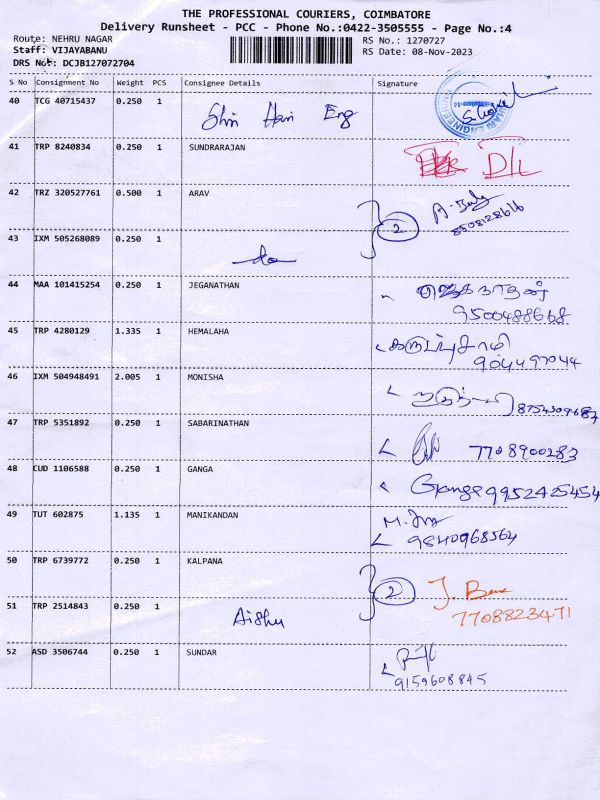 THE PROFESSIONAL COURIERS, COIMBATORE
Delivery Runsheet - PCC - Phone No.:0422-3505555 - Page No.:4
Route: NEHRU NAGAR
Staff: VIJAYABANU
DRS No: DCJB127072704
RS No.: 1270727
RS Date: 08-Nov-2023
S No Consignment No Weight PCS Consignee Details Signature
40 TCG 40715437 0.250 1 Shri Hari Eng
41 TRP 8240834 0.250 1 SUNDRARAJAN D/L
42 TRZ 320527761 0.500 1 ARAV 2
8508128616
43 IXM 505268089 0.250 1 do
44 MAA 101415254 0.250 1 JEGANATHAN ஜெகநாதன்
9500488668
45 TRP 4280129 1.335 1 HEMALAHA கருப்புசாமி
9044497044
46 IXM 504948491 2.005 1 MONISHA
47 TRP 5351892 0.250 1 SABARINATHAN 7708900283
48 CUD 1106588 0.250 1 GANGA Ganga 9952425454
49 TUT 602875 1.135 1 MANIKANDAN
9840968564
50 TRP 6739772 0.250 1 KALPANA 2
51 TRP 2514843 0.250 1 Aishu 7708823471
52 ASD 3506744 0.250 1 SUNDAR
9159608845